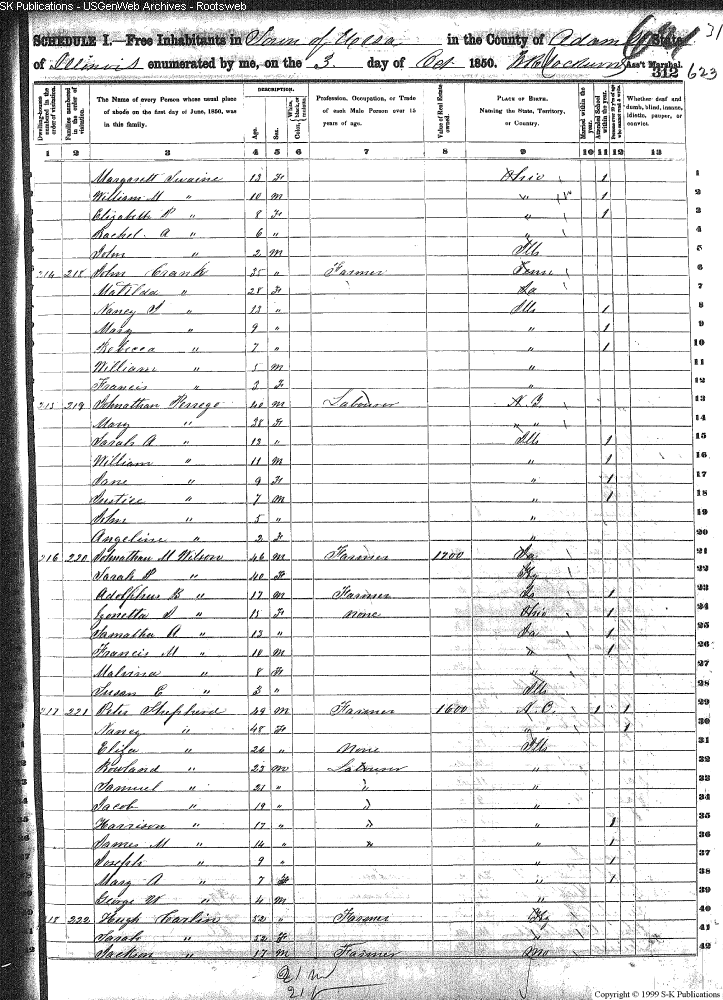 SK Publications - USGenWeb Archives - Rootsweb
31
SCHEDULE I.—Free Inhabitants in Town of Ursa in the County of Adams State
of Illinois enumerated by me, on the 3 day of Oct 1850. Ass't Marshal.
312 623
Dwelling-houses numbered in the order of visitation. Families numbered in the order of visitation. The Name of every Person whose usual place of abode on the first day of June, 1850, was in this family. DESCRIPTION. Age. Sex. Color, White, black, or mulatto. Profession, Occupation, or Trade of each Male Person over 15 years of age. Value of Real Estate owned. PLACE OF BIRTH. Naming the State, Territory, or Country. Married within the year. Attended School within the year. Persons over 20 y'rs of age who cannot read & write. Whether deaf and dumb, blind, insane, idiotic, pauper, or convict.
1 2 3 4 5 6 7 8 9 10 11 12 13
Margarett Swaine 13 F Ohio 1 1
William M " 10 M " 1 2
Elizabeth P " 8 F " 1 3
Rachel A " 6 " " 4
John " 2 M Ills 5
214 218 John Crank 35 " Farmer Tenn 6
Matilda " 28 F Ia 7
Nancy " 13 " Ills 1 8
Mary " 9 " " 1 9
Rebecca " 7 " " 1 10
William " 5 M " 11
Francis " 3 F " 12
215 219 Johnathan Perrego 40 M Labourer 13
Mary " 38 F " 14
Sarah A " 13 " Ills 1 15
William " 11 M " 1 16
Jane " 9 F " 1 17
Justice " 7 M " 1 18
John " 5 " " 19
Angeline " 2 F " 20
216 220 Johnathan M Wilson 46 M Farmer 1700 21
Sarah P " 40 F Ky 22
Adolphus B " 17 M Farmer Ia 1 23
" 15 F none Ohio 1 24
Samatha A " 13 " Ia 1 25
Francis M " 10 M " 1 26
Malvina " 8 F " 27
Susan E " 3 " Ills 28
217 221 Peter Shepherd 49 M Farmer 1600 N.C. 1 1 29
Nancy " 48 F " " 1 30
Eliza " 26 " None Ills 31
Rowland " 23 M Labourer " 32
Samuel " 21 " " " 33
Jacob " 19 " " " 34
Harrison " 17 " " " 1 35
James M " 14 " " " 1 36
Joseph " 9 " " 1 37
Mary A " 7 F " 1 38
George W " 4 M " 39
218 222 Hugh Carlin 52 " Farmer Ky 40
Sarah " 52 F " 41
Jackson " 17 M Farmer Mo 42
21 M
21 F
Copyright © 1999 S-K Publications